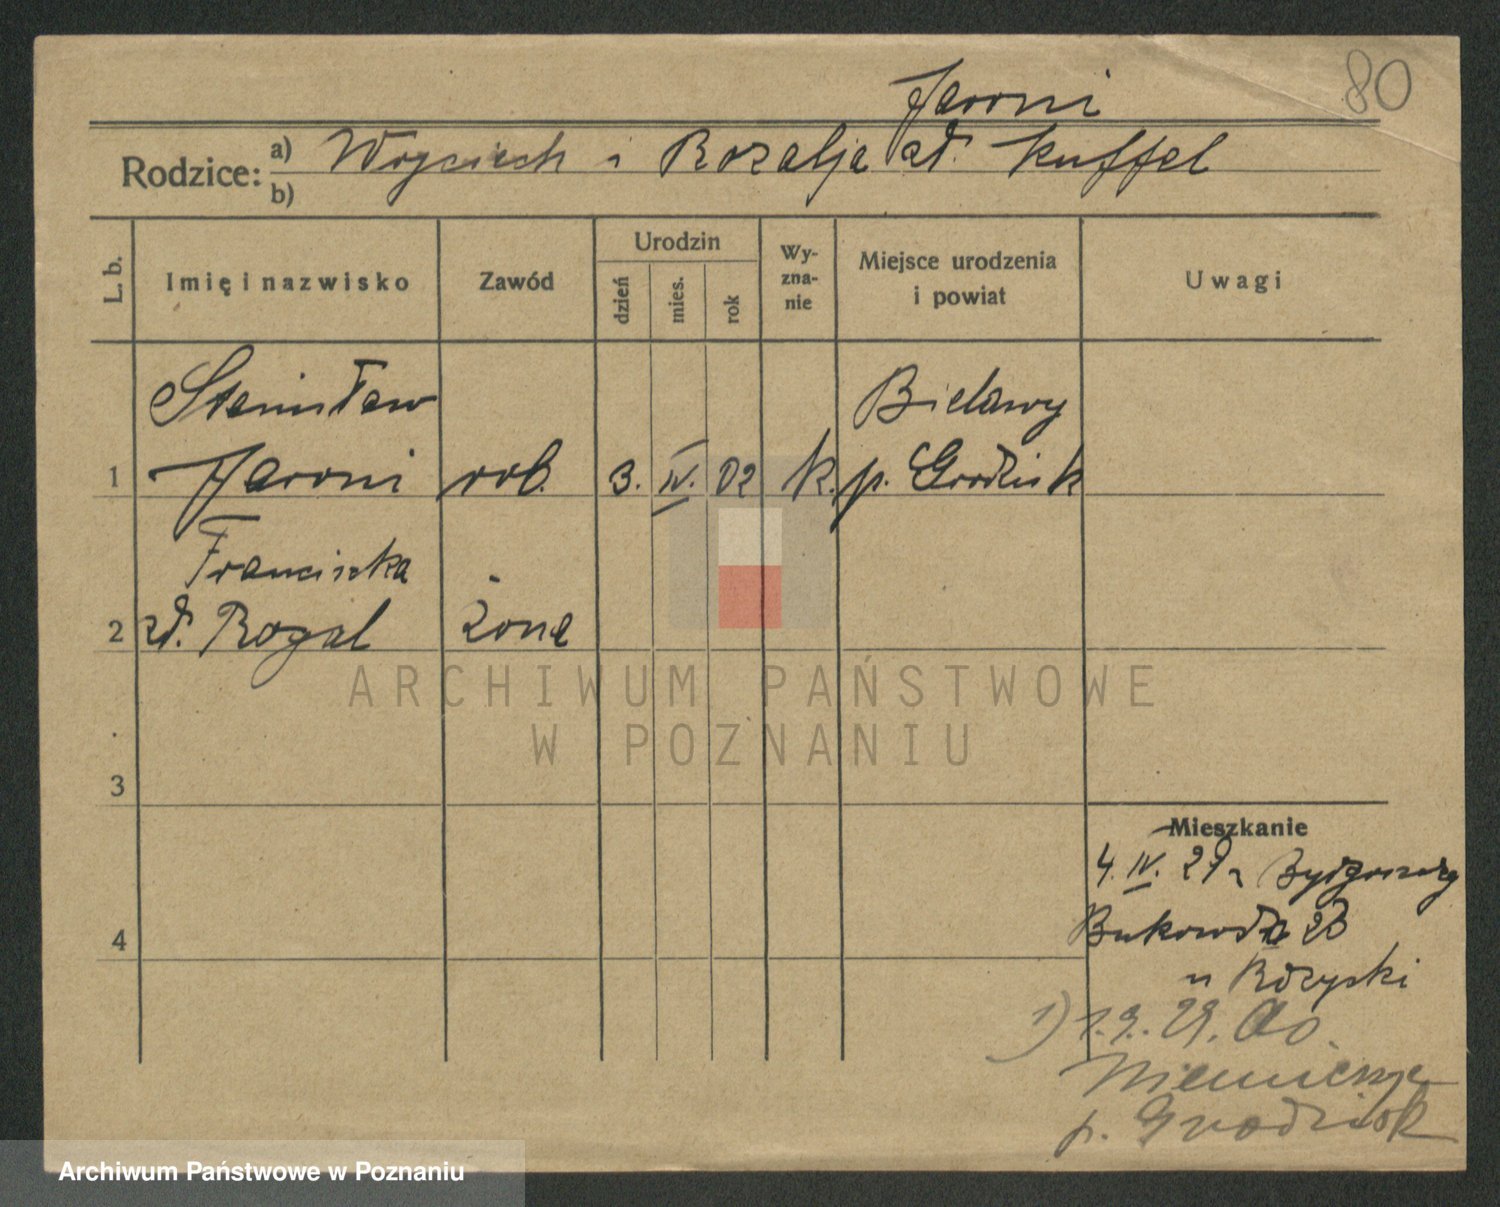 80
Jaroni
Rodzice: a) Wojciech i Rozalja zd. Kuffel
b)
L. b. Imię i nazwisko Zawód Urodzin dzień mies. rok Wyznanie Miejsce urodzenia i powiat Uwagi
Stanisław Bielawy
1 Jaroni rob. 3. IV. 02 k. p. Grodzisk
Franciszka
2 zd. Rogal żona
ARCHIWUM PAŃSTWOWE
W POZNANIU
3
Mieszkanie
4. IV. 29 z Bydgoszczy
4 Bukowska 23
u
1) 1.9.29. do
p. Grodzisk
Archiwum Państwowe w Poznaniu